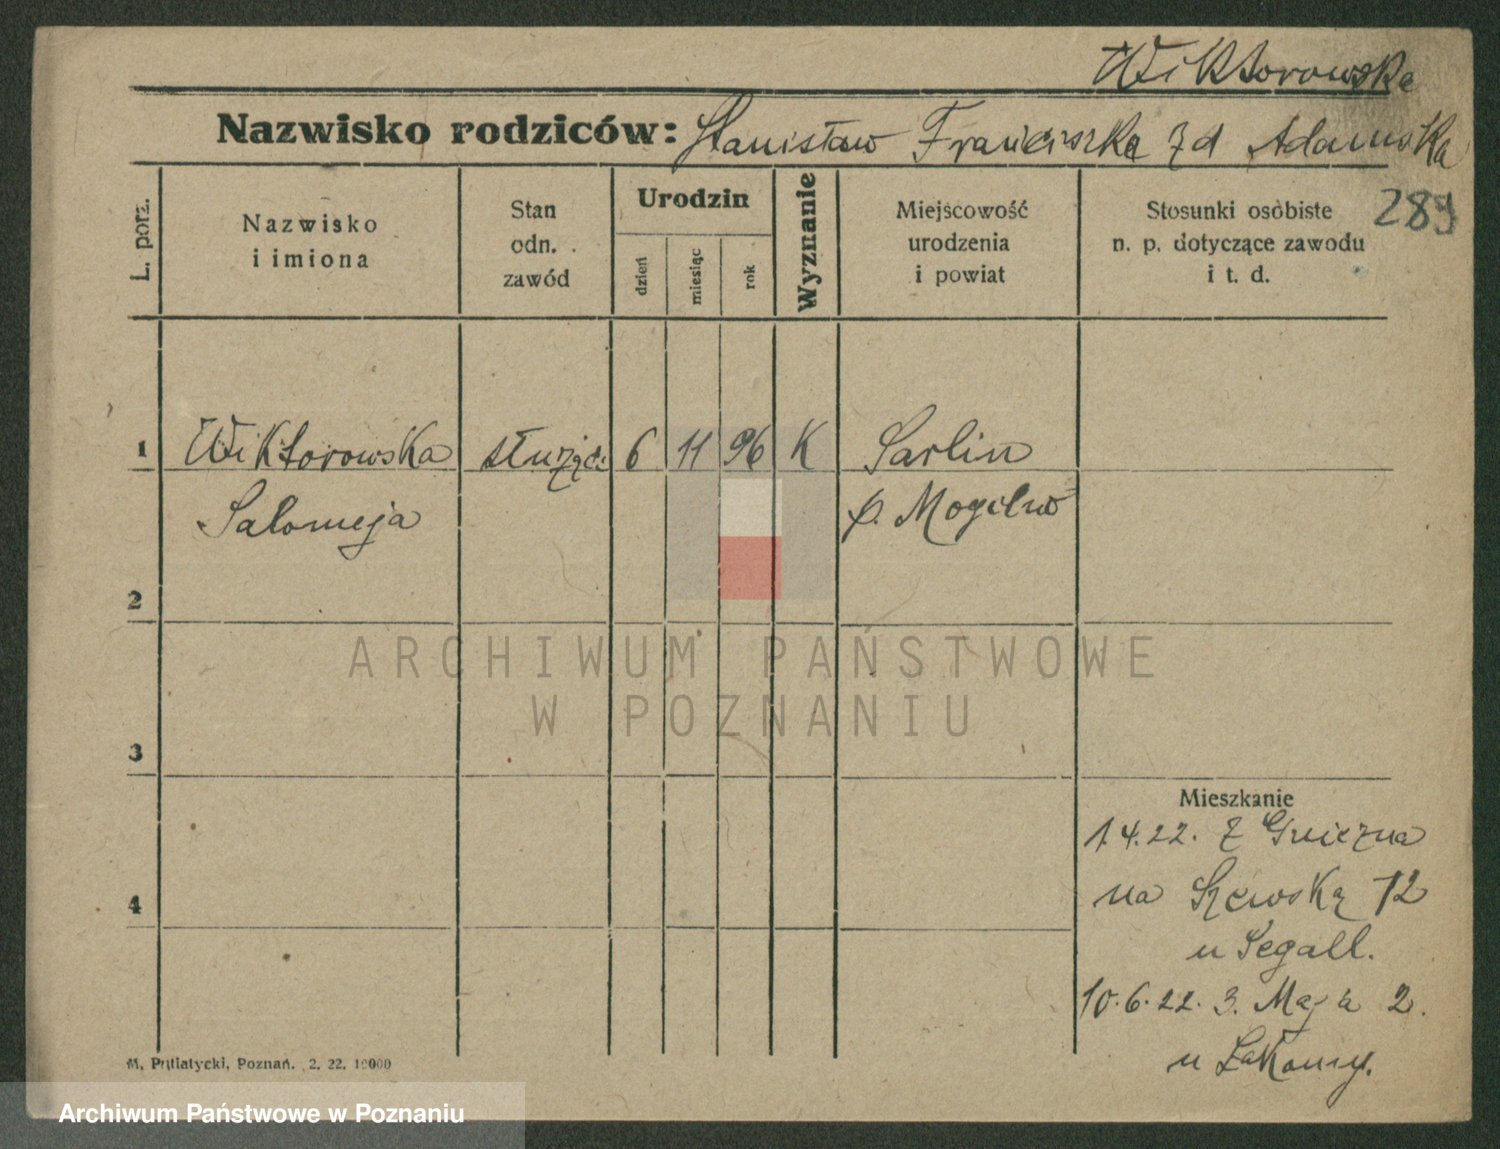 Wiktorowska
Nazwisko rodziców: Stanisław Franciszka zd Adamska
289
L. porz.
Nazwisko
i imiona
Stan
odn.
zawód
Urodzin
dzień
miesiąc
rok
Wyznanie
Miejscowość
urodzenia
i powiat
Stosunki osobiste
n. p. dotyczące zawodu
i t. d.
1 Wiktorowska służąc. 6 11 96 K Sarlin
Salomeja p. Mogilno
2
ARCHIWUM PAŃSTWOWE
W POZNANIU
3
4
Mieszkanie
1.4.22. z Gniezna
na Szewską 12
u Segall.
10.6.22. 3. Maja 2.
u
M. Putiatycki, Poznań. 2. 22. 10000
Archiwum Państwowe w Poznaniu